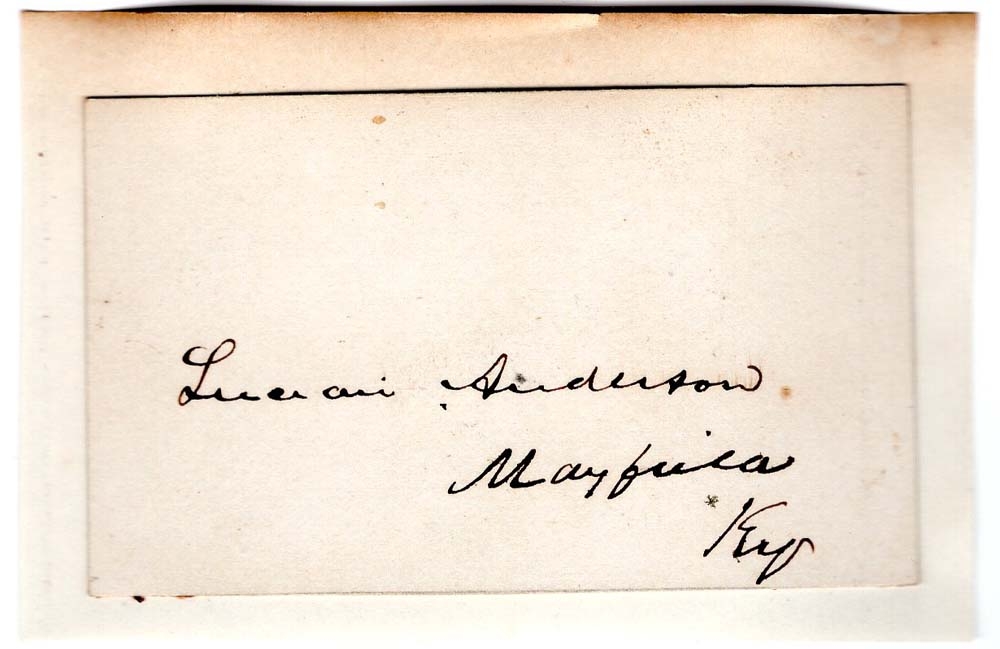 Lucian Anderson
Mayfield
Ky